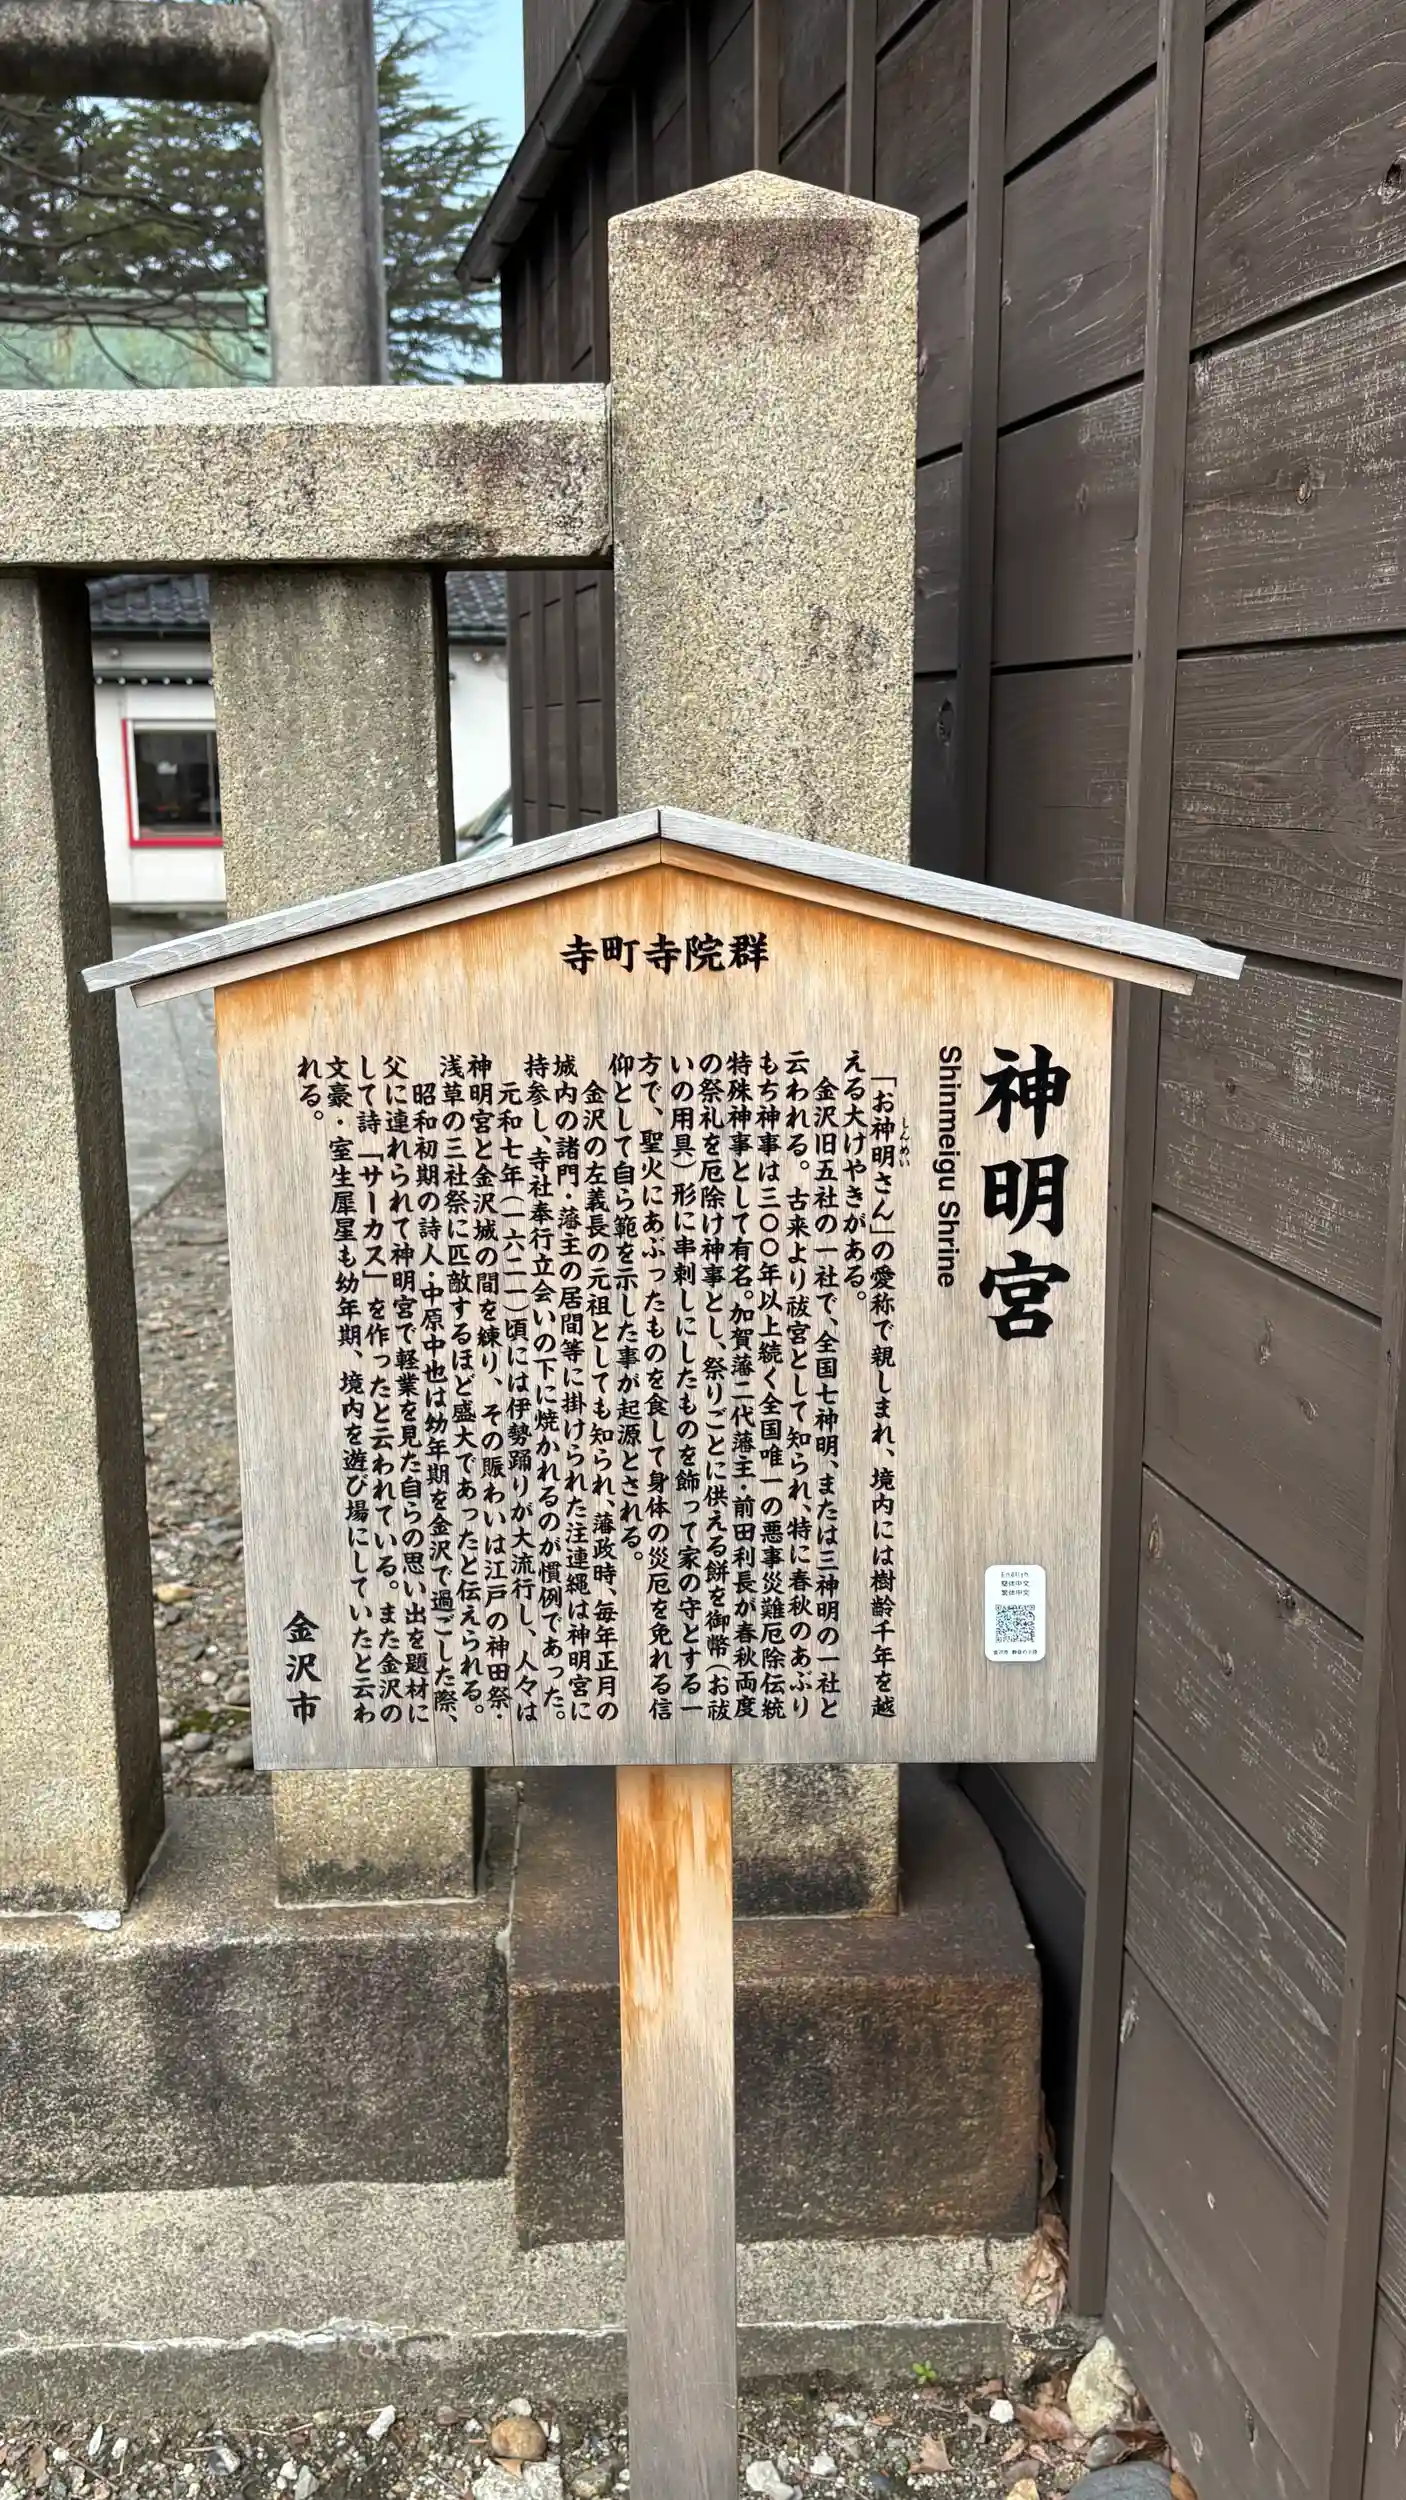 寺町寺院群
神明宮
Shinmeigu Shrine
しんめい
「お神明さん」の愛称で親しまれ、境内には樹齢千年を越
える大けやきがある。
金沢旧五社の一社で、全国七神明、または三神明の一社と
云われる。古来より祓宮として知られ、特に春秋のあぶり
もち神事は三〇〇年以上続く全国唯一の悪事災難厄除伝統
特殊神事として有名。加賀藩二代藩主・前田利長が春秋両度
の祭礼を厄除け神事とし、祭りごとに供える餅を御幣（お祓
いの用具）形に串刺しにしたものを飾って家の守とする一
方で、聖火にあぶったものを食して身体の災厄を免れる信
仰として自ら範を示した事が起源とされる。
金沢の左義長の元祖としても知られ、藩政時、毎年正月の
城内の諸門・藩主の居間等に掛けられた注連縄は神明宮に
持参し、寺社奉行立会いの下に焼かれるのが慣例であった。
元和七年（一六二一）頃には伊勢踊りが大流行し、人々は
神明宮と金沢城の間を練り、その賑わいは江戸の神田祭・
浅草の三社祭に匹敵するほど盛大であったと伝えられる。
昭和初期の詩人・中原中也は幼年期を金沢で過ごした際、
父に連れられて神明宮で軽業を見た自らの思い出を題材に
して詩「サーカス」を作ったと云われている。また金沢の
文豪・室生犀星も幼年期、境内を遊び場にしていたと云わ
れる。
金沢市
English
簡体中文
繁体中文